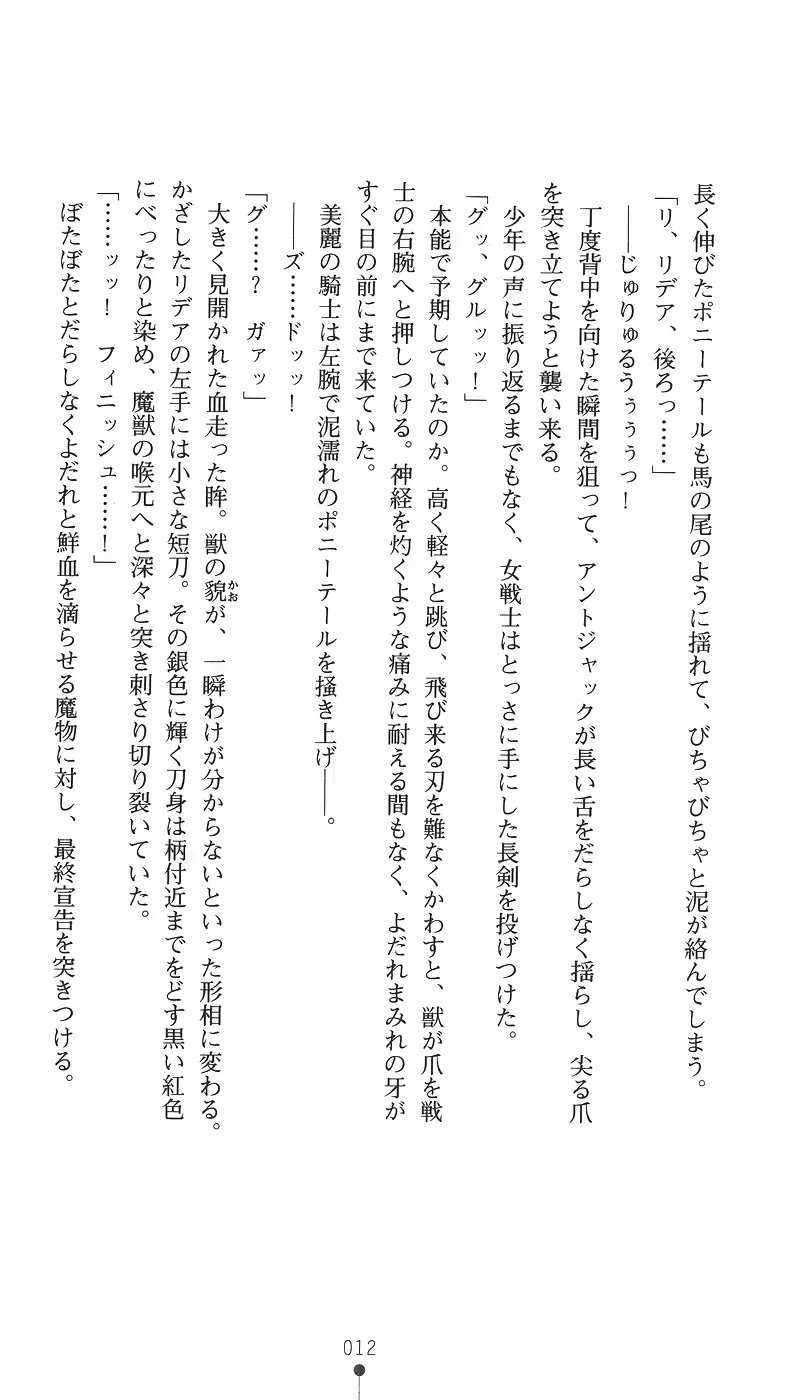 長く伸びたポニーテールも馬の尾のように揺れて、びちゃびちゃと泥が絡んでしまう。
「リ、リデア、後ろっ……」
――じゅりゅるうぅぅぅっ！
丁度背中を向けた瞬間を狙って、アントジャックが長い舌をだらしなく揺らし、尖る爪
を突き立てようと襲い来る。
少年の声に振り返るまでもなく、女戦士はとっさに手にした長剣を投げつけた。
「グッ、グルッッ！」
本能で予期していたのか。高く軽々と跳び、飛び来る刃を難なくかわすと、獣が爪を戦
士の右腕へと押しつける。神経を灼くような痛みに耐える間もなく、よだれまみれの牙が
すぐ目の前にまで来ていた。
美麗の騎士は左腕で泥濡れのポニーテールを掻き上げ――。
――ズ……ドッッ！
「グ……？　ガァッ」
大きく見開かれた血走った眸。獣の貌かおが、一瞬わけが分からないといった形相に変わる。
かざしたリデアの左手には小さな短刀。その銀色に輝く刀身は柄付近までをどす黒い紅色
にべったりと染め、魔獣の喉元へと深々と突き刺さり切り裂いていた。
「……ッッ！　フィニッシュ……！」
ぼたぼたとだらしなくよだれと鮮血を滴らせる魔物に対し、最終宣告を突きつける。
012